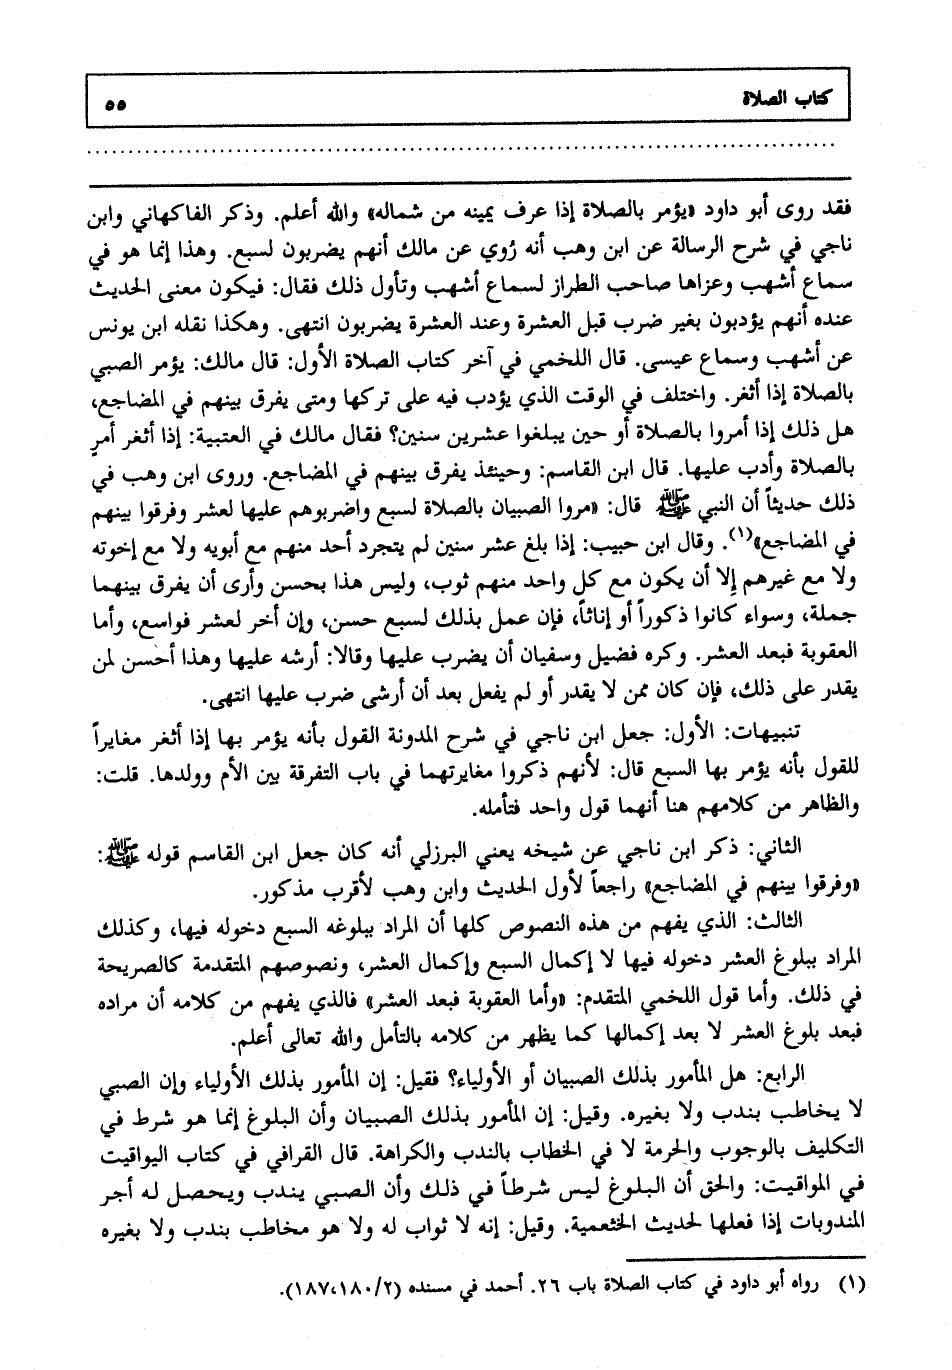 كتاب الصلاة ٥٥
فقد روى أبو داود «يؤمر بالصلاة إذا عرف يمينه من شماله» والله أعلم. وذكر الفاكهاني وابن
ناجي في شرح الرسالة عن ابن وهب أنه رُوي عن مالك أنهم يضربون لسبع. وهذا إنما هو في
سماع أشهب وعزاها صاحب الطراز لسماع أشهب وتأول ذلك فقال: فيكون معنى الحديث
عنده أنهم يؤدبون بغير ضرب قبل العشرة وعند العشرة يضربون انتهى. وهكذا نقله ابن يونس
عن أشهب وسماع عيسى. قال اللخمي في آخر كتاب الصلاة الأول: قال مالك: يؤمر الصبي
بالصلاة إذا أثغر. واختلف في الوقت الذي يؤدب فيه على تركها ومتى يفرق بينهم في المضاجع،
هل ذلك إذا أمروا بالصلاة أو حين يبلغوا عشرين سنين؟ فقال مالك في العتبية: إذا أثغر أمرٍ
بالصلاة وأدب عليها. قال ابن القاسم: وحينئذ يفرق بينهم في المضاجع. وروى ابن وهب في
ذلك حديثاً أن النبي ﷺ قال: «مروا الصبيان بالصلاة لسبع واضربوهم عليها لعشر وفرقوا بينهم
في المضاجع»(١). وقال ابن حبيب: إذا بلغ عشر سنين لم يتجرد أحد منهم مع أبويه ولا مع إخوته
ولا مع غيرهم إلا أن يكون مع كل واحد منهم ثوب، وليس هذا بحسن وأرى أن يفرق بينهما
جملة، وسواء كانوا ذكوراً أو إناثاً، فإن عمل بذلك لسبع حسن، وإن أخر لعشر فواسع، وأما
العقوبة فبعد العشر. وكره فضيل وسفيان أن يضرب عليها وقالا: أرشه عليها وهذا أحسن لمن
يقدر على ذلك، فإن كان ممن لا يقدر أو لم يفعل بعد أن أرشى ضرب عليها انتهى.
تنبيهات: الأول: جعل ابن ناجي في شرح المدونة القول بأنه يؤمر بها إذا أثغر مغايراً
للقول بأنه يؤمر بها السبع قال: لأنهم ذكروا مغايرتهما في باب التفرقة بين الأم وولدها. قلت:
والظاهر من كلامهم هنا أنهما قول واحد فتأمله.
الثاني: ذكر ابن ناجي عن شيخه يعني البرزلي أنه كان جعل ابن القاسم قوله ﷺ:
«وفرقوا بينهم في المضاجع» راجعاً لأول الحديث وابن وهب لأقرب مذكور.
الثالث: الذي يفهم من هذه النصوص كلها أن المراد ببلوغه السبع دخوله فيها، وكذلك
المراد ببلوغ العشر دخوله فيها لا إكمال السبع وإكمال العشر، ونصوصهم المتقدمة كالصريحة
في ذلك. وأما قول اللخمي المتقدم: «وأما العقوبة فبعد العشر» فالذي يفهم من كلامه أن مراده
فبعد بلوغ العشر لا بعد إكمالها كما يظهر من كلامه بالتأمل والله تعالى أعلم.
الرابع: هل المأمور بذلك الصبيان أو الأولياء؟ فقيل: إن المأمور بذلك الأولياء وإن الصبي
لا يخاطب بندب ولا بغيره. وقيل: إن المأمور بذلك الصبيان وأن البلوغ إنما هو شرط في
التكليف بالوجوب والحرمة لا في الخطاب بالندب والكراهة. قال القرافي في كتاب اليواقيت
في المواقيت: والحق أن البلوغ ليس شرطاً في ذلك وأن الصبي يندب ويحصل له أجر
المندوبات إذا فعلها لحديث الخثعمية. وقيل: إنه لا ثواب له ولا هو مخاطب بندب ولا بغيره
(١) رواه أبو داود في كتاب الصلاة باب ٢٦. أحمد في مسنده (١٨٠/٢،١٨٧).